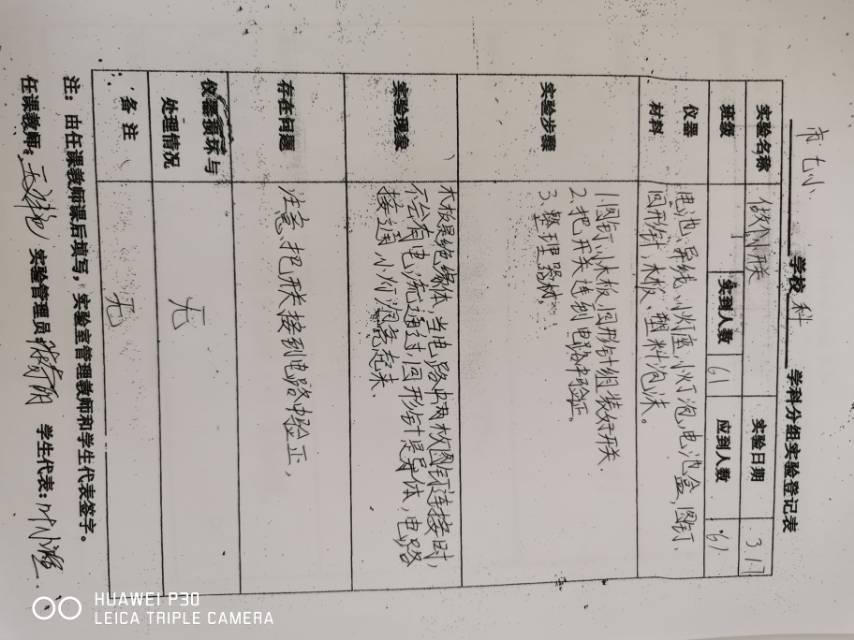 市七小 学校 科 学科分组实验登记表
实验名称 做个小开关 实验日期 3.17
班级 实到人数 61 应到人数 61
仪器材料 电池、导线、小灯座、小灯泡、电池盒、图钉、
回形针、木板、塑料泡沫。
实验步骤 1.图钉、小木板、回形针组装好开关.
2.把开关连到电路中验证。
3.整理器材.
实验现象 木板是绝缘体,当电路中两枚图钉连接时,
不会有电流通过,回形针是导体,电路
接通,小灯泡亮起来.
存在问题 注意把开关接到电路中验证,
仪器损坏与处理情况 无
备注 无
注:由任课教师课后填写,实验室管理教师和学生代表签字。
任课教师: 实验管理员: 学生代表:
HUAWEI P30
LEICA TRIPLE CAMERA